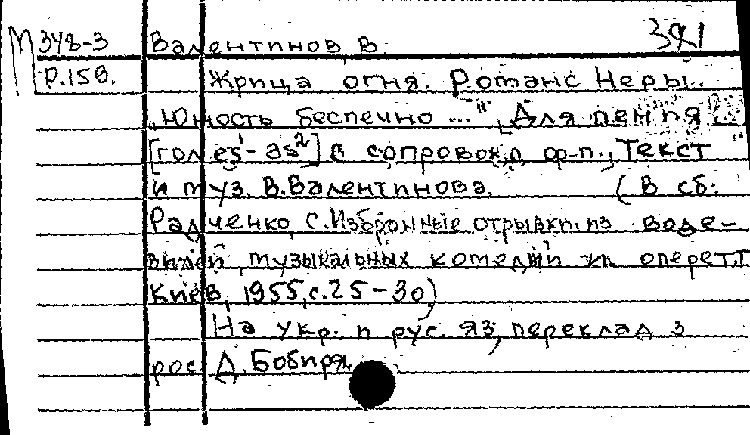 М 348-3 Валентинов, В. 391
р.150. Жрица огня. Романс Неры.
"Юность беспечно ...", Для пения
[гол es¹-as²] с сопровожд. ф-п., Текст
и муз. В. Валентинова. (В сб:
Радченко, С. Избранные отрывки из воде-
вилей, музыкальных комедий и оперетт
Киев, 1955, с.25-30)
На укр. и рус. яз, переклад з
рос Д. Бобиря.